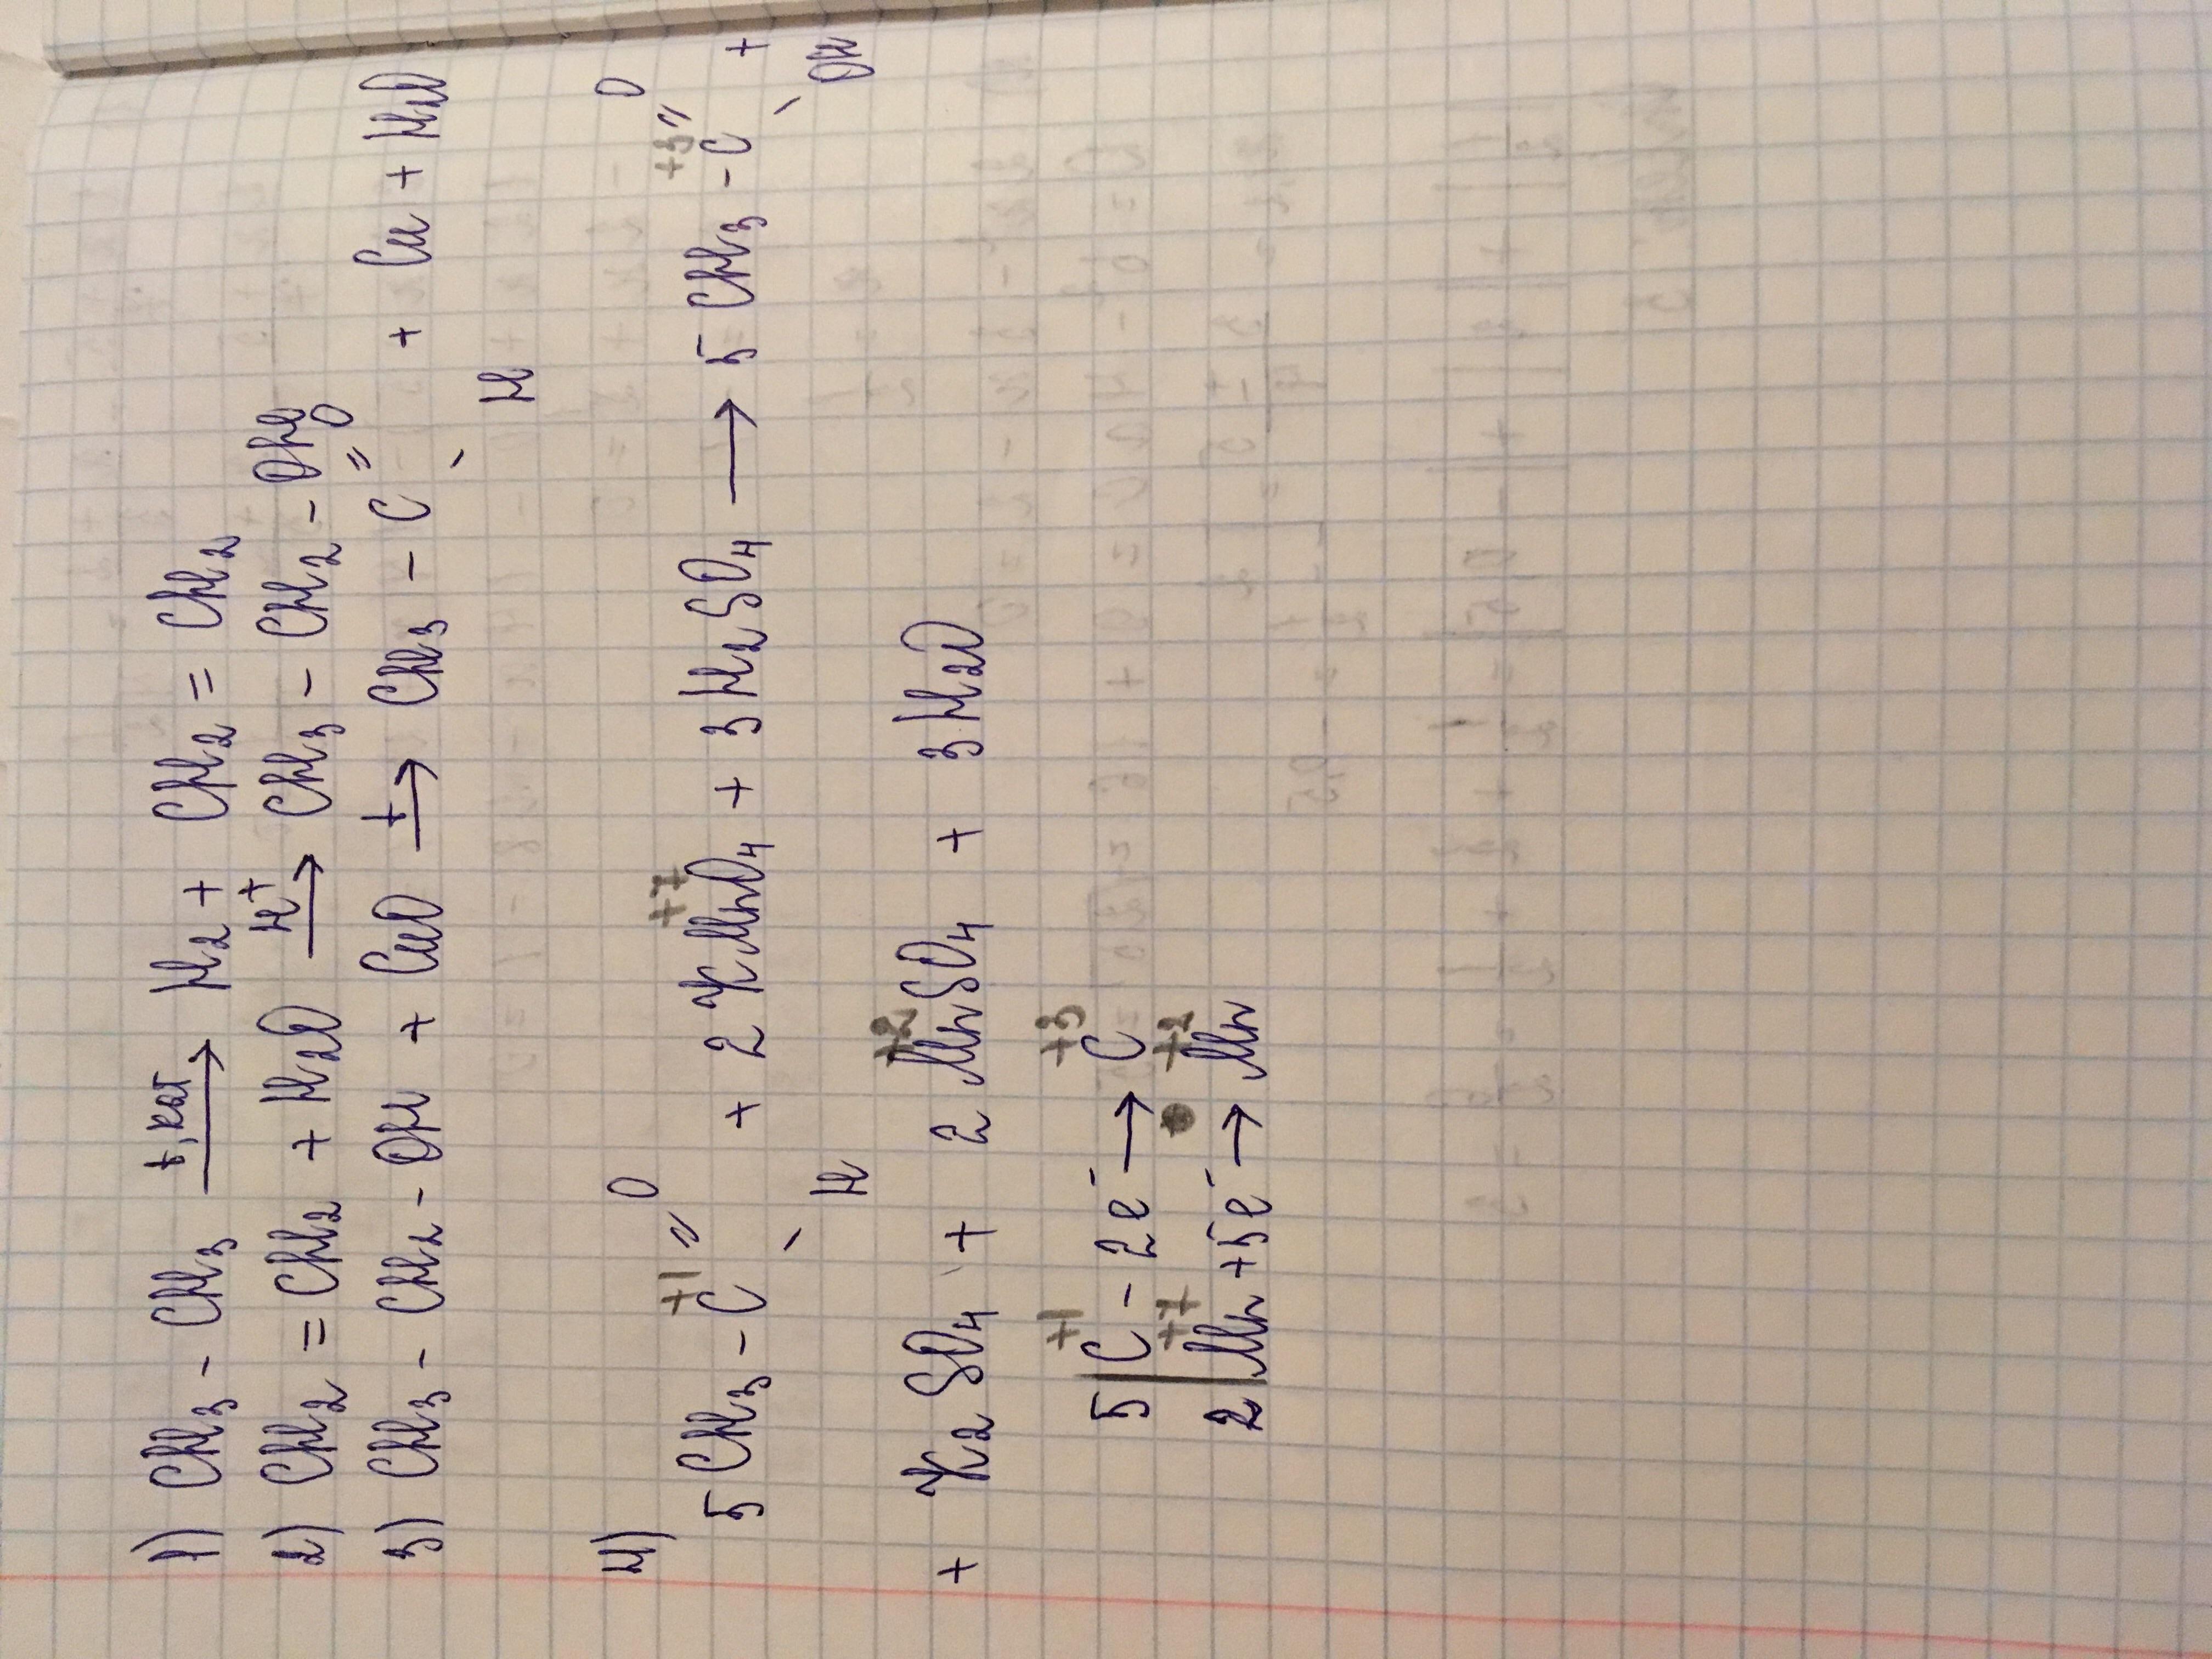 1) CH₃ - CH₃ →(t, кат) H₂ + CH₂ = CH₂
2) CH₂ = CH₂ + H₂O →(H⁺) CH₃ - CH₂ - OH
3) CH₃ - CH₂ - OH + CuO →(t) CH₃ - C(=O)(-H) + Cu + H₂O
4) 5 CH₃ - C⁺¹(=O)(-H) + 2 KMn⁺⁷O₄ + 3 H₂SO₄ → 5 CH₃ - C⁺³(=O)(-OH) +
+ K₂SO₄ + 2 Mn⁺²SO₄ + 3 H₂O
5 | C⁺¹ - 2e⁻ → C⁺³
2 | Mn⁺⁷ + 5e⁻ → Mn⁺²